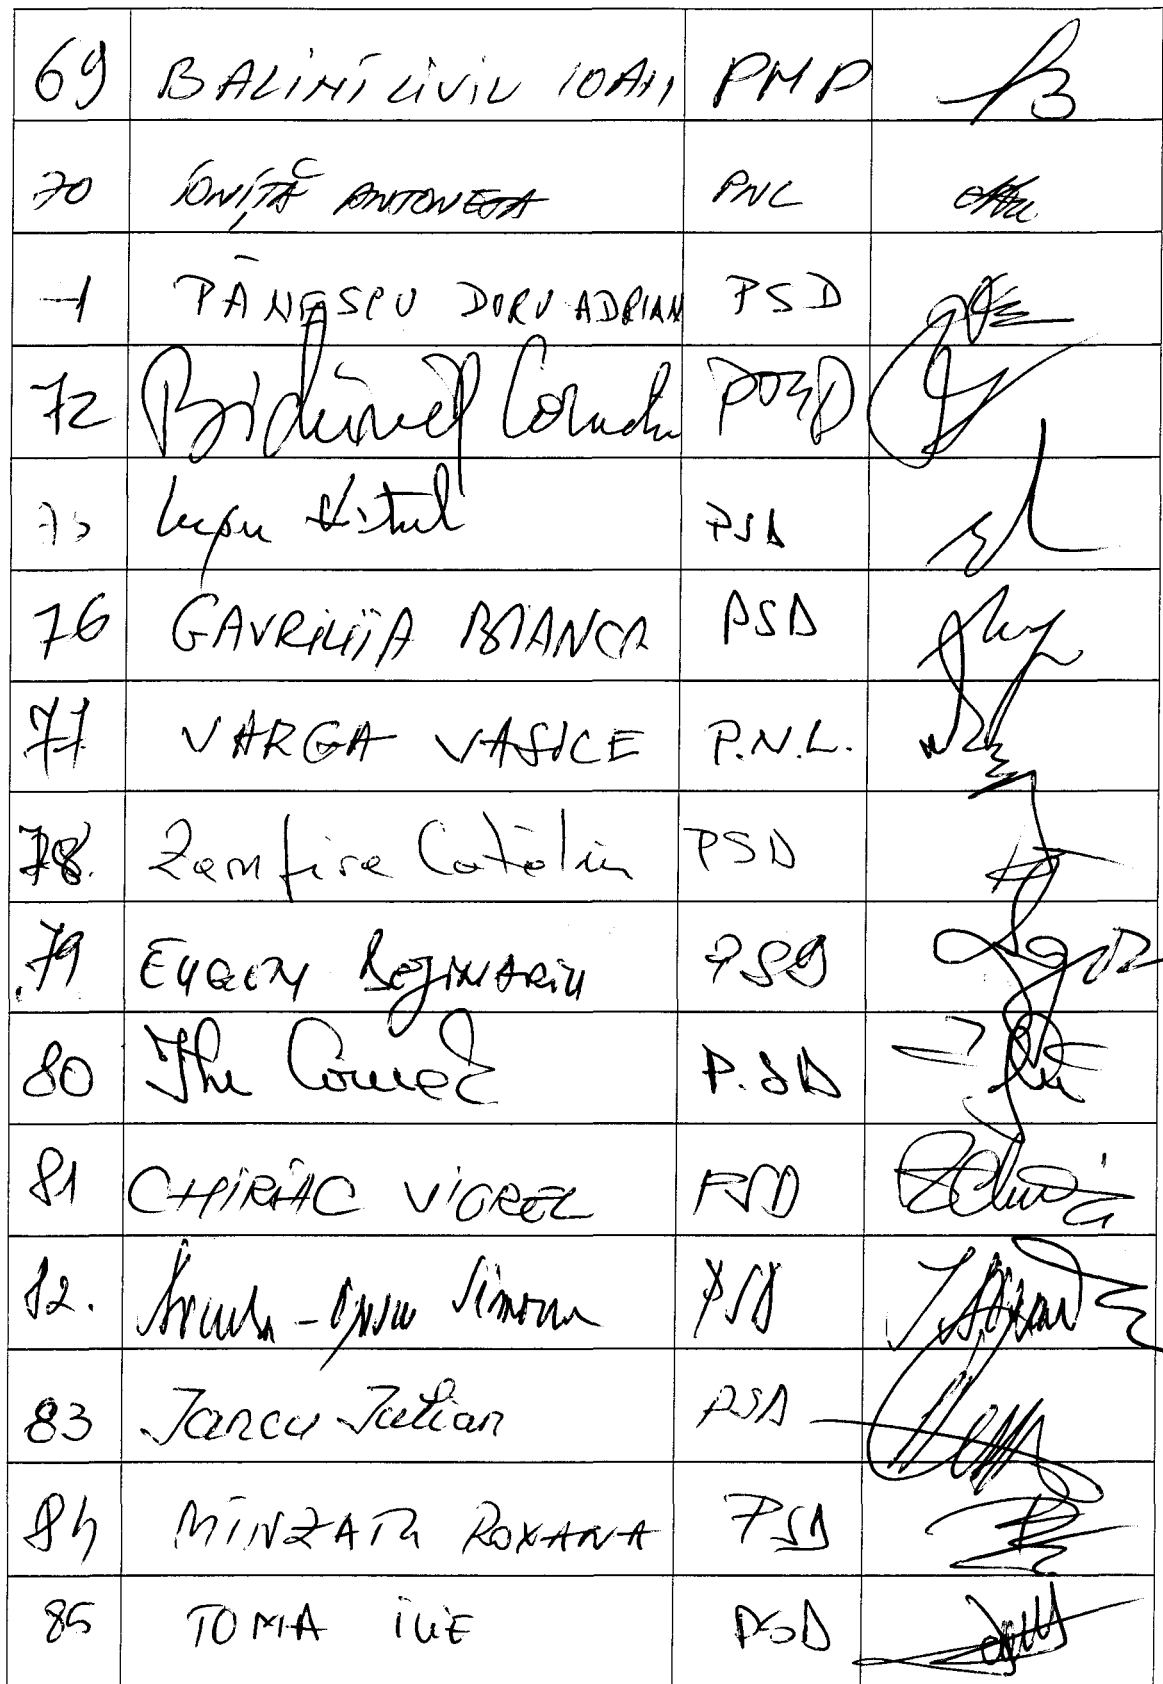 69 BALINT LIVIU IOAN PMP
70 IONIȚĂ ANTONETA PNL
PĂNESCU DORU ADRIAN PSD
72 PSD
Lupu Vitul PSD
76 GAVRILIȚA BIANCA PSD
77 VARGA VASILE P.N.L.
78. Zamfira Cătălin PSD
79 EUGEN BEJINARIU PSD
80 Cornel P.SD
81 CHIRIAC VIOREL PSD
82. Simona PSD
83 Iancu Iulian PSD
84 MINZATU ROXANA PSD
85 TOMA ILIE PSD